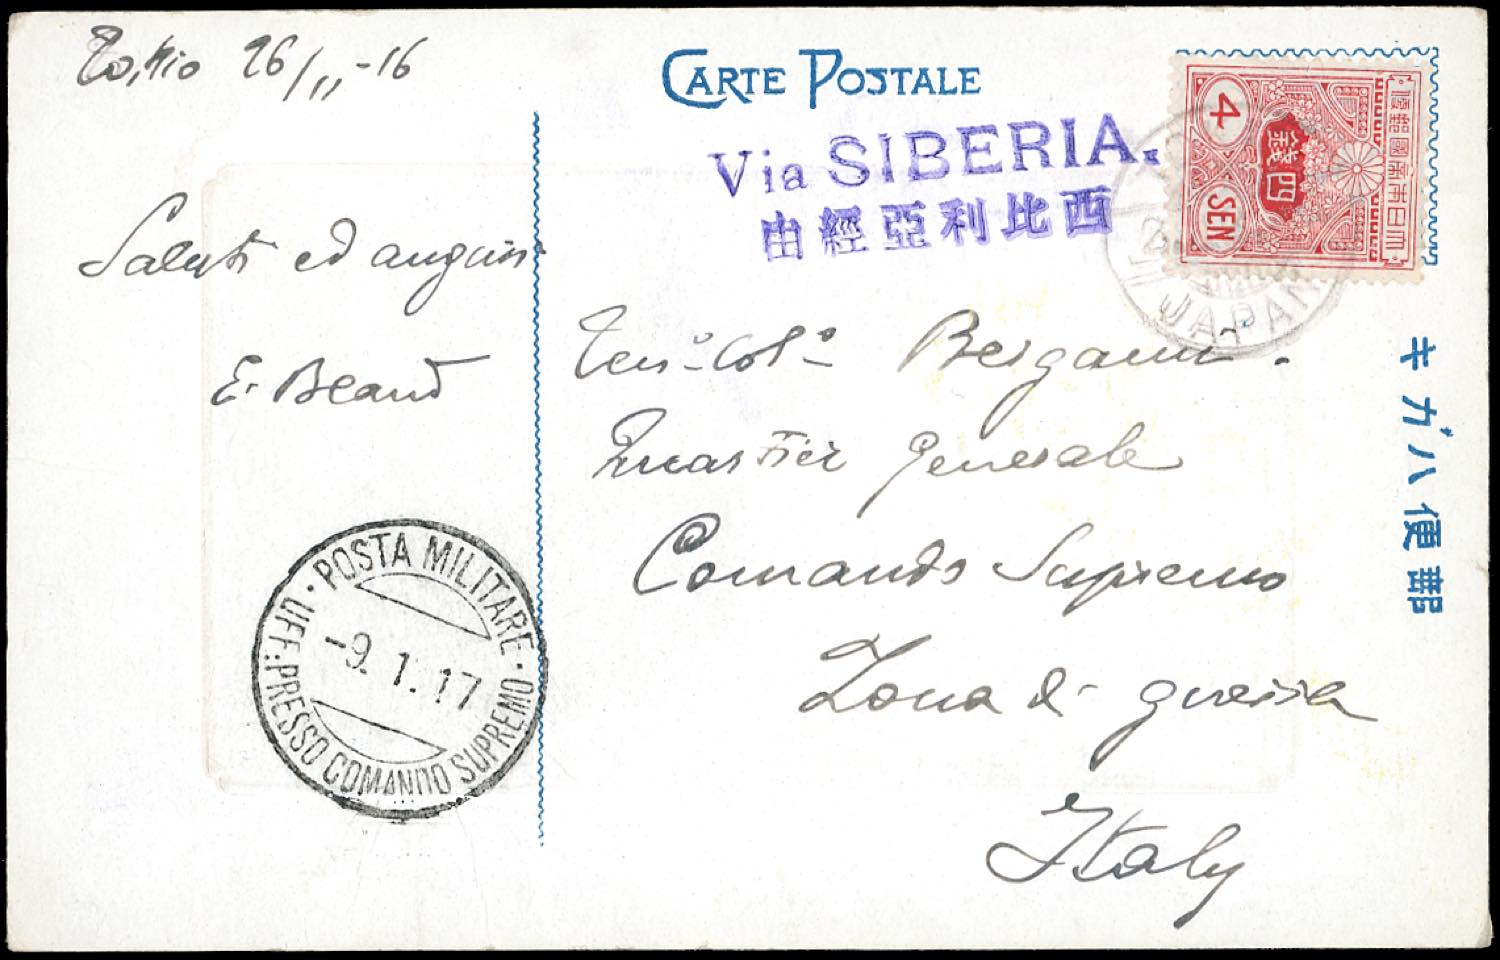 Tokio 26/11-16
CARTE POSTALE
Via SIBERIA.
西比利亞經由
4
四錢
SEN
大日本帝國郵便
JAPAN
Saluti ed auguri
E.
Tenᵉ Colᵒ Bergami.
Quartier Generale
Comando Supremo
Zona di guerra
Italy
キガハ便郵
POSTA MILITARE
-9.1.17
UFF: PRESSO COMANDO SUPREMO